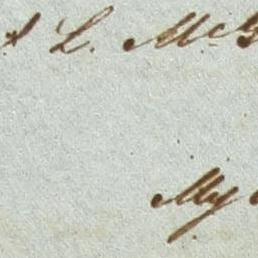 L. McG
My